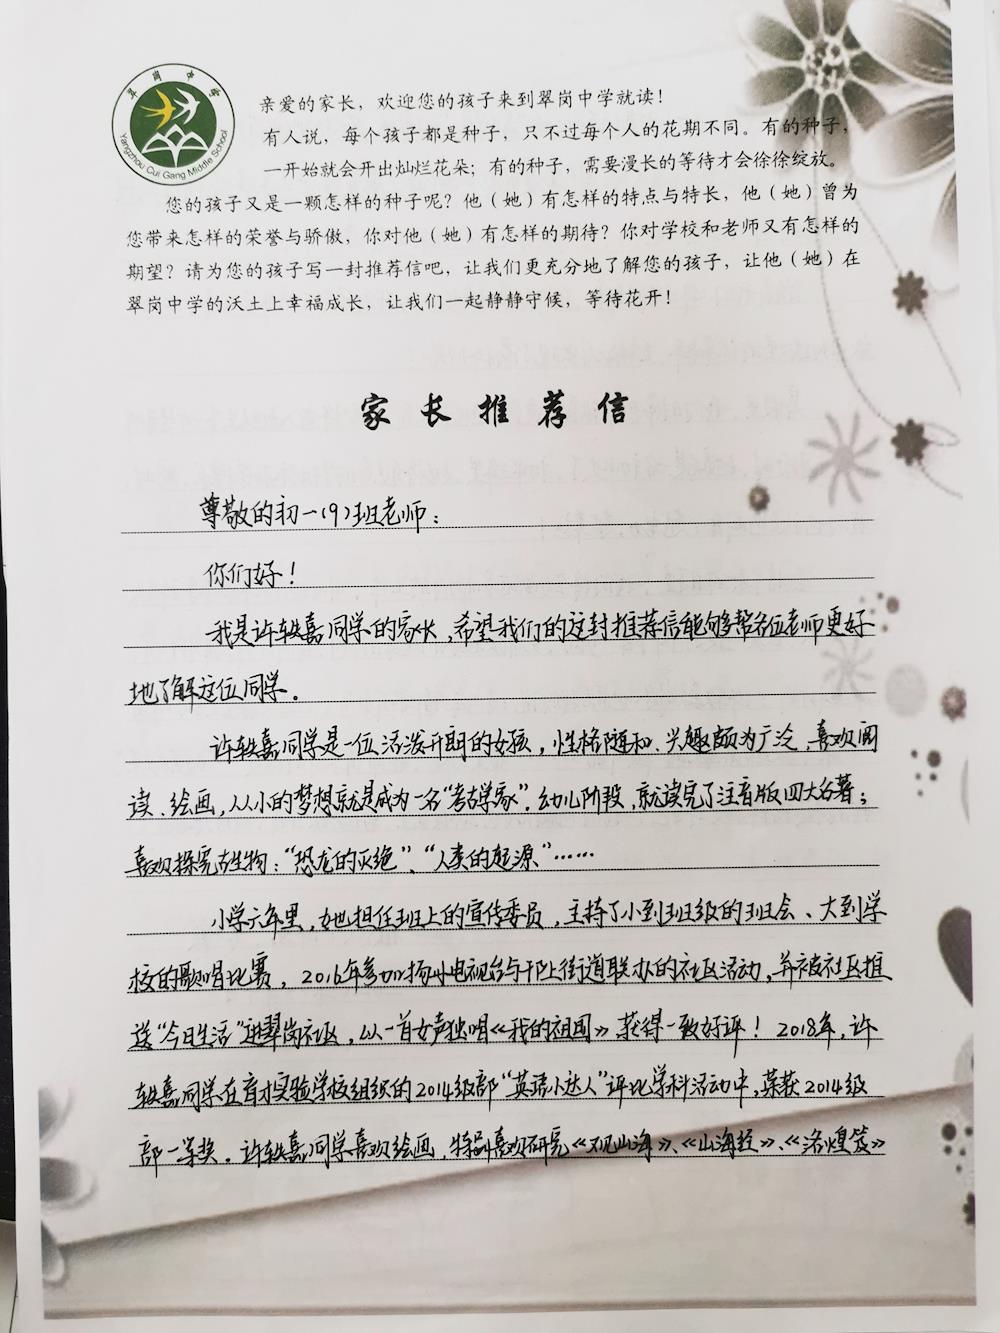 翠岗中学
Yangzhou Cui Gang Middle School
亲爱的家长，欢迎您的孩子来到翠岗中学就读！
有人说，每个孩子都是种子，只不过每个人的花期不同。有的种子，
一开始就会开出灿烂花朵；有的种子，需要漫长的等待才会徐徐绽放。
您的孩子又是一颗怎样的种子呢？他（她）有怎样的特点与特长，他（她）曾为
您带来怎样的荣誉与骄傲，你对他（她）有怎样的期待？你对学校和老师又有怎样的
期望？请为您的孩子写一封推荐信吧，让我们更充分地了解您的孩子，让他（她）在
翠岗中学的沃土上幸福成长，让我们一起静静守候，等待花开！
家长推荐信
尊敬的初一（9）班老师：
你们好！
我是许轶嘉同学的家长，希望我们的这封推荐信能够帮各位老师更好
地了解这位同学。
许轶嘉同学是一位活泼开朗的女孩，性格随和、兴趣颇为广泛，喜欢阅
读、绘画，从小的梦想就是成为一名“考古学家”。幼儿阶段，就读完了注音版四大名著；
喜欢探究古生物：“恐龙的灭绝”、“人类的起源”……
小学六年里，她担任班上的宣传委员，主持了小到班级的班会、大到学
校的歌唱比赛，2016年参加扬州电视台与邗上街道联办的社区活动，并被社区推
送“今日生活”进翠岗社区，以一首女声独唱《我的祖国》获得一致好评！2018年，许
轶嘉同学在育才实验学校组织的2014级部“英语小达人”评比学科活动中，荣获2014级
部一等奖。许轶嘉同学喜欢绘画，特别喜欢研究《观山海》、《山海经》、《洛煌笈》